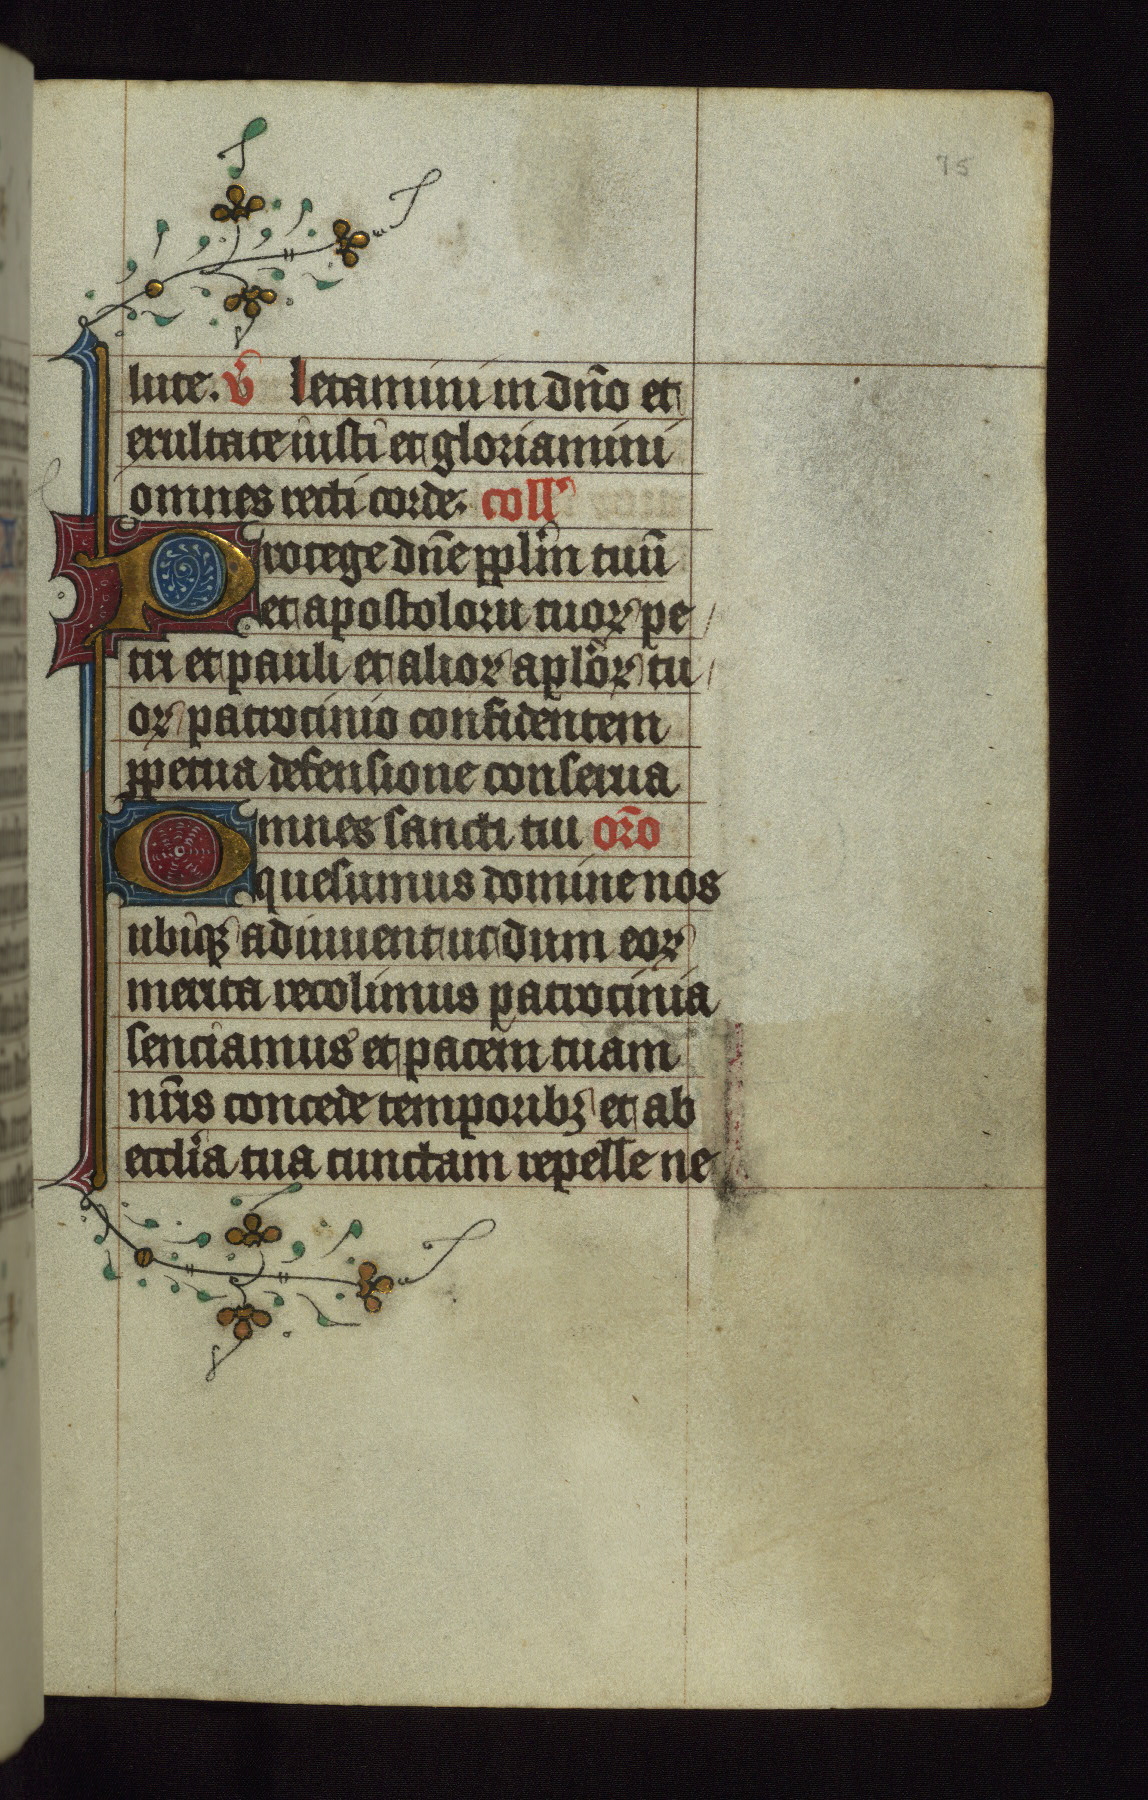 75
lute. v̄ letamini in dn̄o et
exultate iusti et gloriamini
omnes recti corde. coll'
Protege dn̄e pplm̄ tuū
et apostoloru tuoꝝ pe
tri et pauli et alioꝝ aplōꝝ tu
oꝝ patrocinio confidentem
ꝑpetua defensione conserua
Omnes sancti tui or̄o
quesumus domine nos
ubiqꝫ adiuuent ut dum eoꝝ
merita recolimus patrocinia
senciamus et pacem tuam
nr̄is concede temporibꝫ et ab
eccli̅a tua cunctam repelle ne